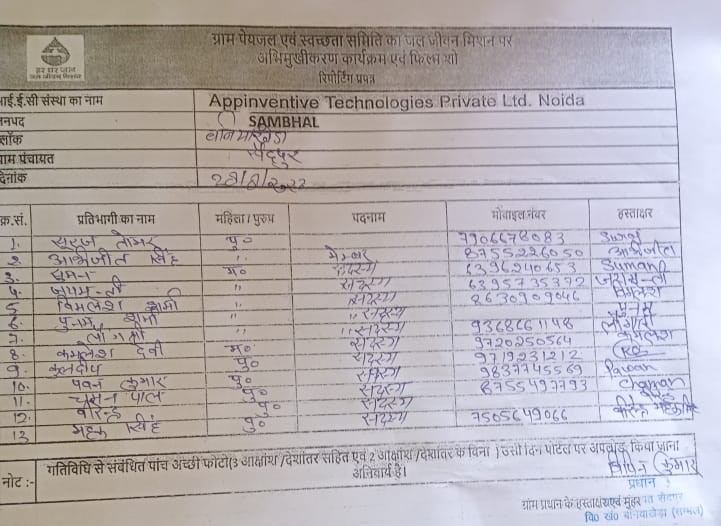 ग्राम पेयजल एवं स्वच्छता समिति का जल जीवन मिशन पर
अभिमुखीकरण कार्यक्रम एवं फिल्म शो
रिपोर्टिंग प्रपत्र
हर घर जल
जल जीवन मिशन
आई.ई.सी संस्था का नाम Appinventive Technologies Private Ltd. Noida
जनपद SAMBHAL
ब्लॉक
ग्राम पंचायत सैदपुर
दिनांक
क्र.सं. प्रतिभागी का नाम महिला / पुरुष पदनाम मोबाइल नंबर हस्ताक्षर
1. सूरज तोमर पु० 7906678083 Suraj
2 अभिजीत सिंह " मेम्बर 8755226050 अभिजीत
3. सुमन म० सदस्य 6396240653 Suman
4. " सदस्य 6395735372
5 विमलेश " सदस्य 8630909046 विमलेश
6 पुनम " सदस्य पुनम
7. " सदस्य 9368661148
8. कमलेश देवी म० सदस्य 9720250564 कमलेश
9. कुलदीप पु० सदस्य 9719231212
10. पवन कुमार पु० सदस्य 9837745569 Pawan
11. पाल पु० सदस्य 8755497793 Chaman
12. वीरेन्द्र पु० सदस्य
13 सिंह पु० सदस्य 7505649066
नोट :- गतिविधि से संबंधित पांच अच्छी फोटो(3 आक्षांश /देशांतर सहित एवं 2 आक्षांश /देशांतर के बिना ) उसी दिन पोर्टल पर अपलोड किया जाना
अनिवार्य है।
कुमार
प्रधान
ग्राम प्रधान के हस्ताक्षर एवं मुहर